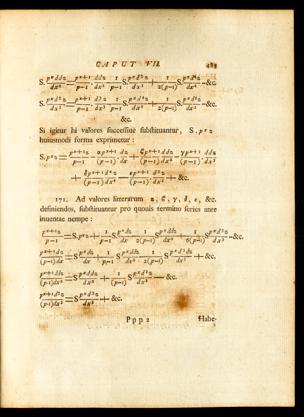 CAPUT VII. 483
S. p^x ddz/dx² = p^{x+1}/(p−1) · ddz/dx² − 1/(p−1) S. p^x d³z/dx³ + 1/2(p−1) S. p^x d⁴z/dx⁴ − &c.
S. p^x d³z/dx³ = p^{x+1}/(p−1) · d³z/dx³ − 1/(p−1) S. p^x d⁴z/dx⁴ + 1/2(p−1) S. p^x d⁵z/dx⁵ − &c.
&c.
Si igitur hi valores successiue substituantur, S.p^x z
huiusmodi forma exprimetur:
S.p^x z = p^{x+1}z/(p−1) − αp^{x+1}/(p−1) · dz/dx + ϐp^{x+1}/(p−1) · ddz/dx² − γp^{x+1}/(p−1) · d³z/dx³
+ δp^{x+1}/(p−1) · d⁴z/dx⁴ − εp^{x+1}/(p−1) · d⁵z/dx⁵ + &c.
171. Ad valores litterarum α, ϐ, γ, δ, ε, &c.
definiendos, substituantur pro quouis termino series ante
inuentae nempe:
p^{x+1}z/(p−1) = S.p^x z + 1/(p−1) S p^x dz/dx − 1/2(p−1) S p^x ddz/dx² + 1/6(p−1) S p^x d³z/dx³ − &c.
p^{x+1}dz/(p−1)dx = S p^x dz/dx + 1/(p−1) S p^x ddz/dx² − 1/2(p−1) S p^x d³z/dx³ + &c.
p^{x+1}ddz/(p−1)dx² = S p^x ddz/dx² + 1/(p−1) S p^x d³z/dx³ − &c.
p^{x+1}d³z/(p−1)dx³ = S p^x d³z/dx³ + &c.
Ppp 2 Habe-